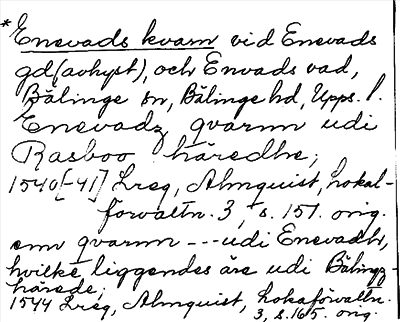 *Enevads kvarn vid Enevads
gd (avhyst), och Envads vad,
Bälinge sn, Bälinge hd, Upps. l.
Enevadz qvarnn udi
Rasboo häredhe,
1540[-41] Lreg, Almquist, Lokal-
förvaltn. 3, s. 151. orig.
enn qvarnn --- udi Enevadh,
hvilke liggendes äre udi Bälingz-
härede,
1544 Lreg, Almquist, Lokaförvaltn.
3, s. 165. orig.